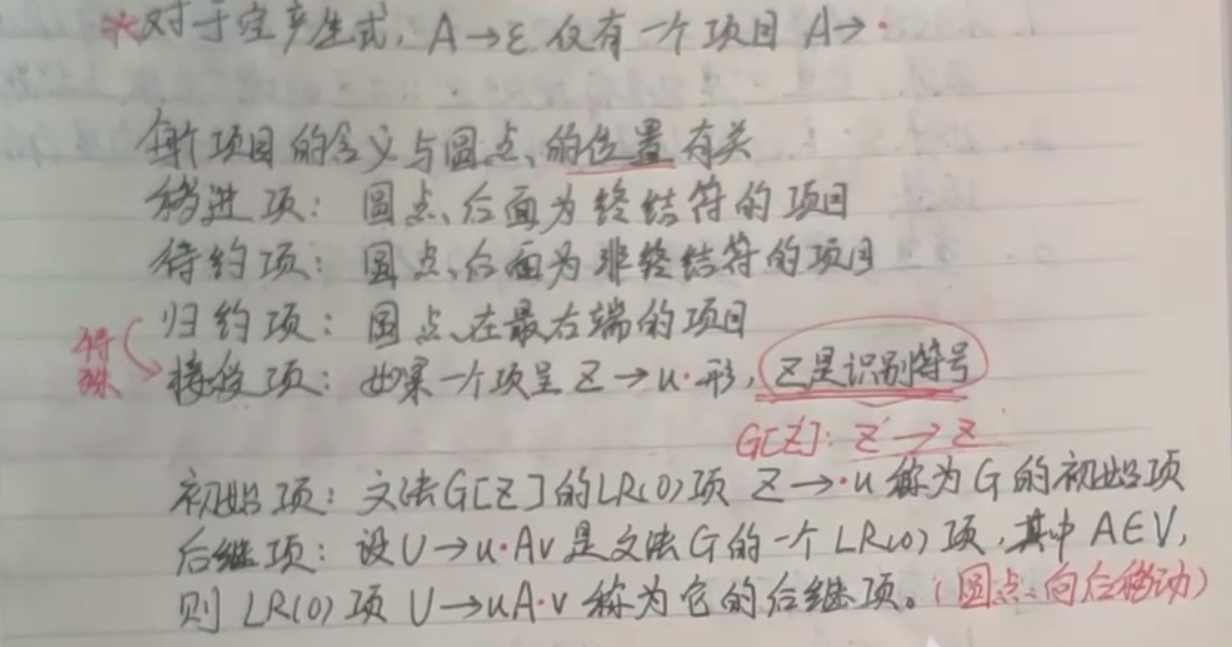 *对于空产生式，A→ε 仅有一个项目 A→·
每个项目的含义与圆点的位置有关
移进项：圆点后面为终结符的项目
待约项：圆点后面为非终结符的项目
归约项：圆点在最右端的项目
特殊
接受项：如果一个项呈 Z→u·形，Z是识别符号
G[Z']：Z'→Z
初始项：文法G[Z]的LR(0)项 Z→·u 称为G的初始项
后继项：设U→u·Av是文法G的一个LR(0)项，其中A∈V，
则 LR(0)项 U→uA·v 称为它的后继项。（圆点向后移动）